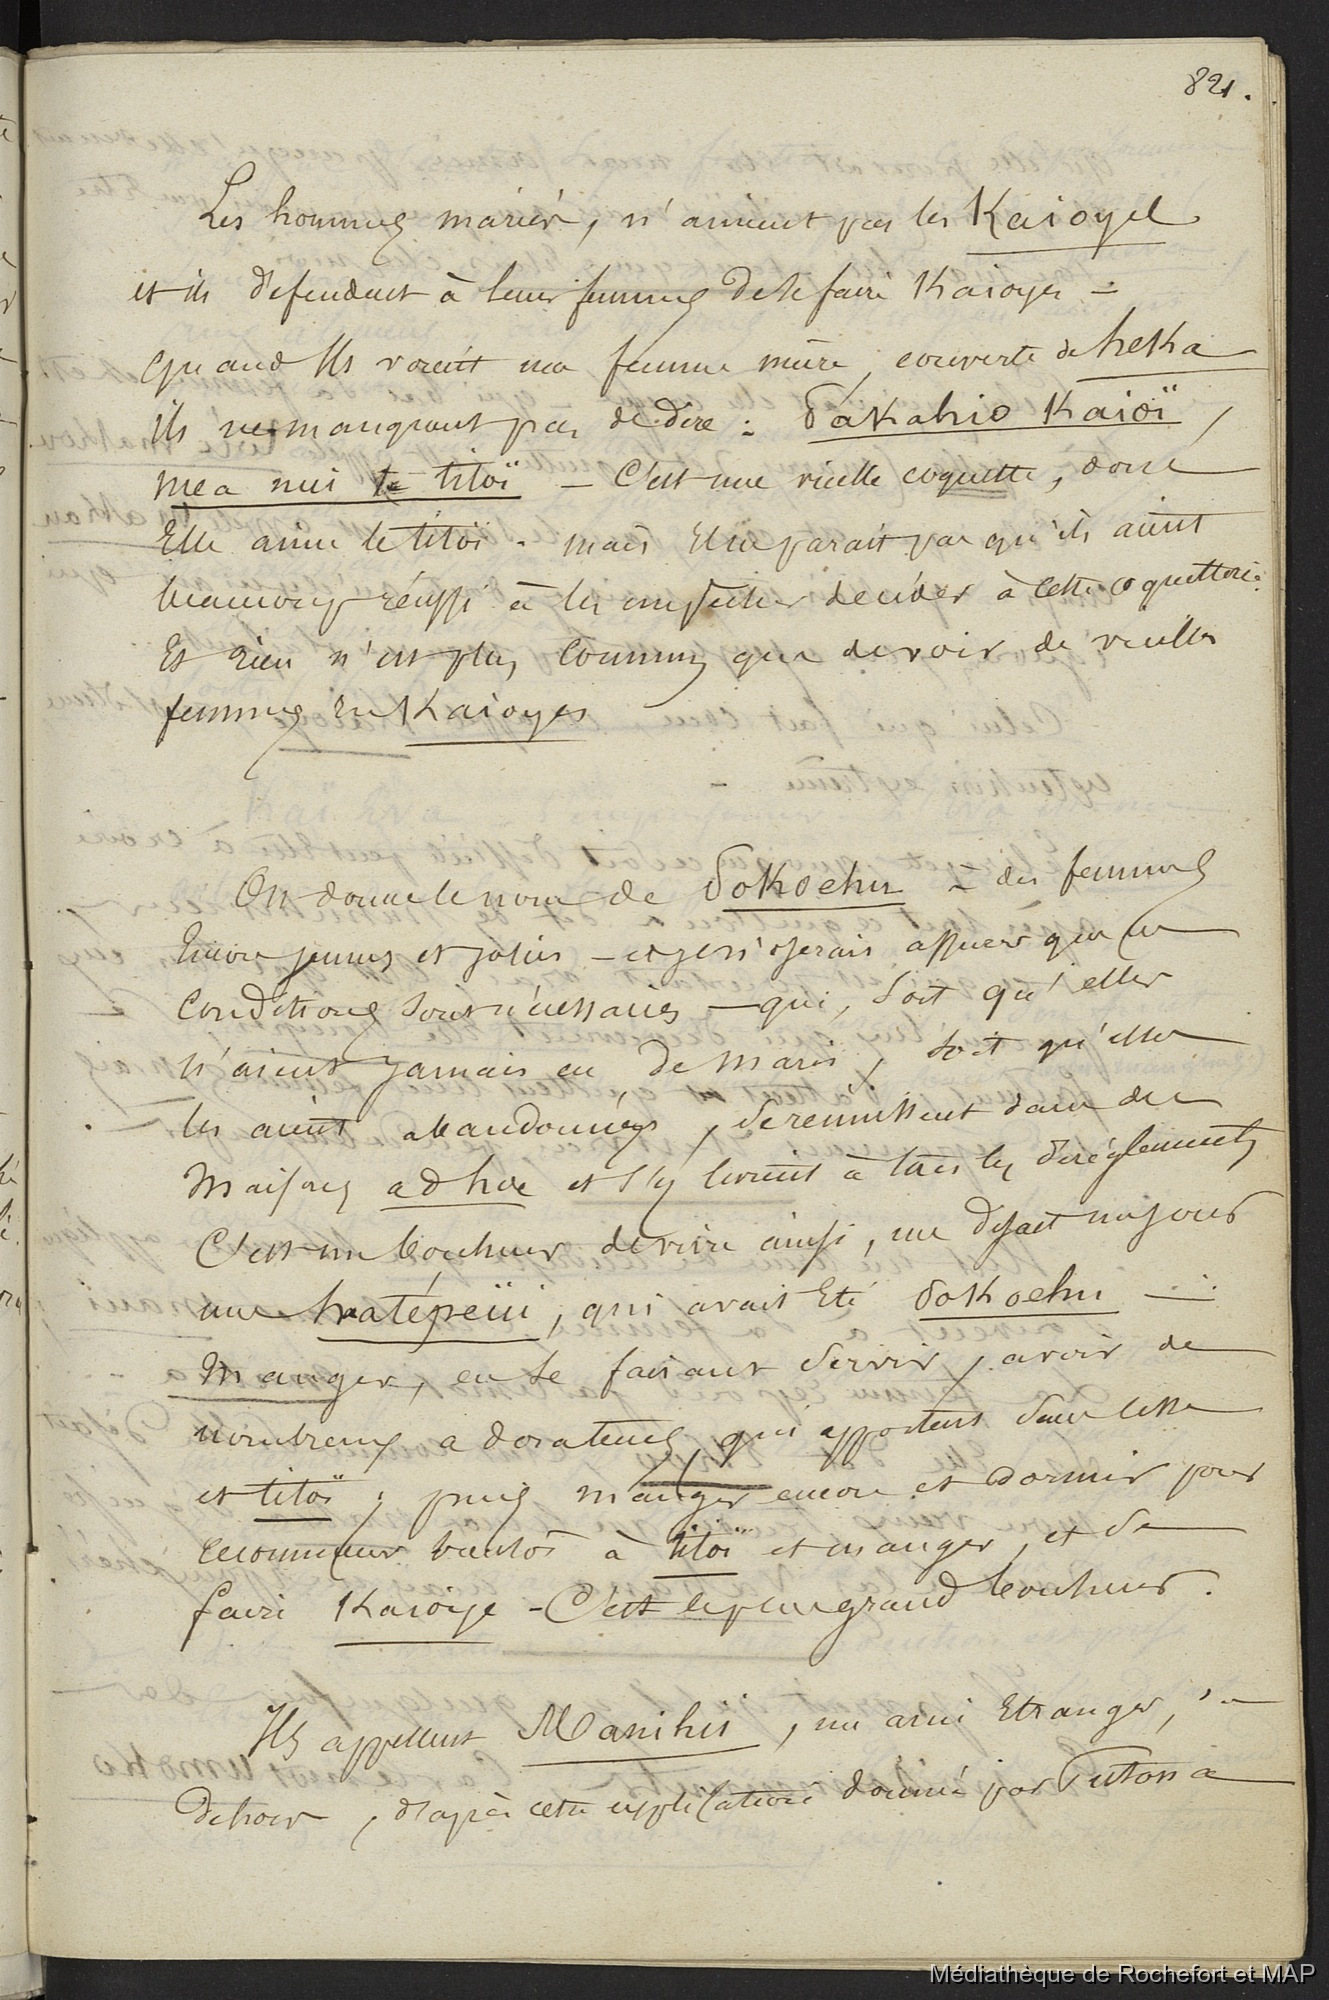 821.
Les hommes mariés, n'aiment pas les Kaioyes
et ils défendent à leurs femmes de se faire Kaioyes =
quand ils voient une femme mûre, couverte de heka
ils ne manquent pas de dire : Pakahio Kaioï,
mea nui te titoï — C'est une vieille coquette, donc
Elle aime le titoï. mais il ne parait pas qu'ils aient
beaucoup réussi à les empêcher de céder à cette coquetterie.
Et rien n'est plus commun que de voir de vieilles
femmes en Kaioyes
On donne le nom de Pokoehu = des femmes
Encore jeunes et jolies — et je n'oserais assurer que ces
Conditions soient nécessaires — qui, soit qu'elles
n'aient jamais eu de maris, soit qu'elles
les aient abandonnés, se réunissent dans des
maisons ad hoc et s'y livrent à tous les dérèglements
C'est un bonheur de vivre ainsi, me disait un jour
une hatépéiü, qui avait Eté Pokoehu —
manger, en se faisant servir, avoir de
nombreux adorateurs, qui apportent
et titoï ; puis manger encore et dormir pour
recommencer bientôt à titoï et manger, et se
faire Kaioye - C'est le plus grand bonheur.
Ils appellent Manihii, un ami Etranger,
dehors, d'après cette explication donnée par
Médiathèque de Rochefort et MAP